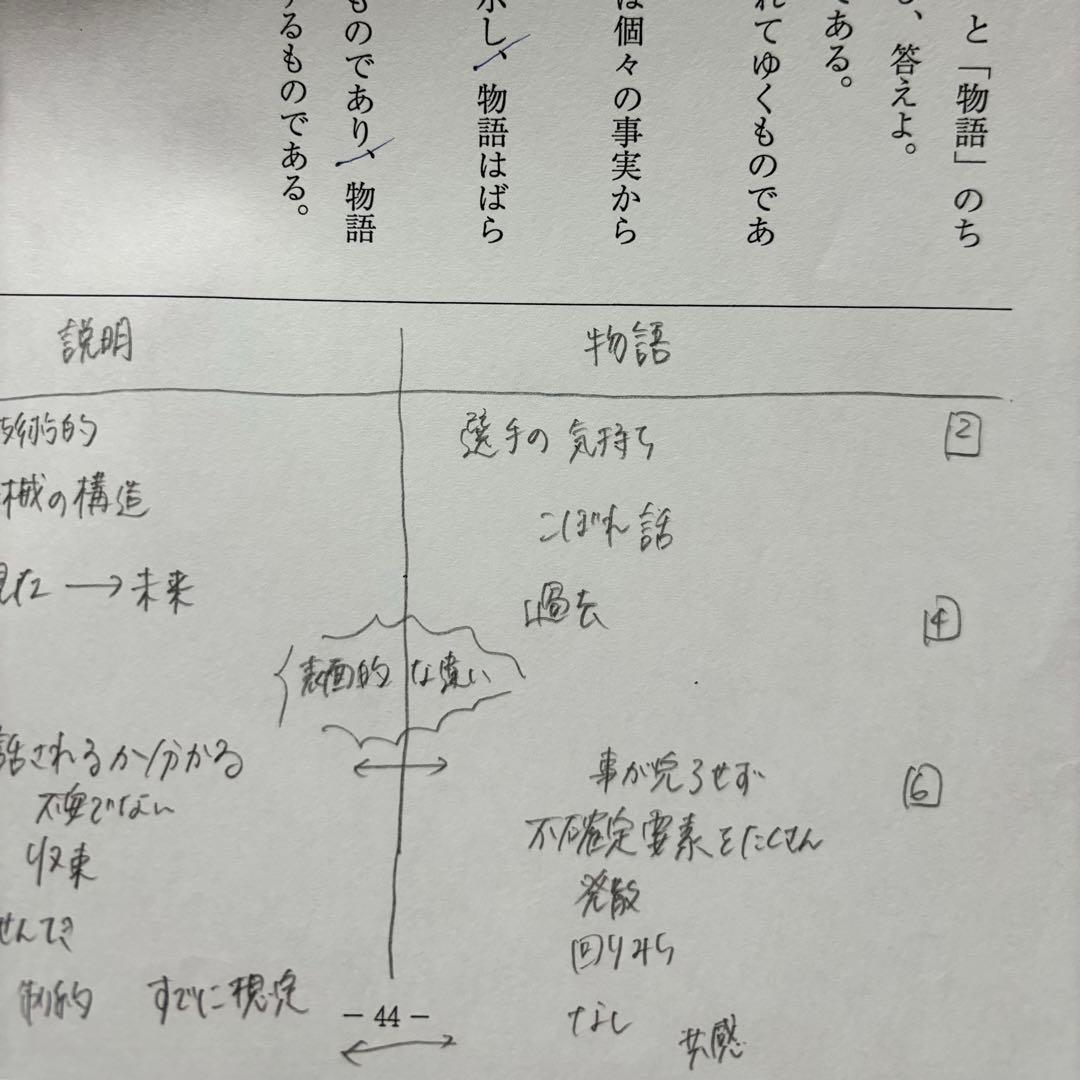 と「物語」のち
、答えよ。
である。
れてゆくものであ
は個々の事実から
示し、物語はばら
ものであり、物語
するものである。
説明
物語
技術的
選手の気持ち
2
械の構造
こぼれ話
→未来
過去
4
表面的な違い
話されるか分かる
事が完了せず
6
不安でない
不確定要素をたくさん
収束
発散
せんてき
回りみち
制約 すでに想定
なし 共感
- 44 -